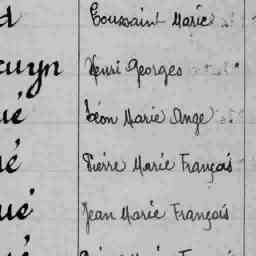 d Toussaint Marie
cuyn Henri Georges
ué Léon Marie Ange
é Pierre Marie François
ué Jean Marie François